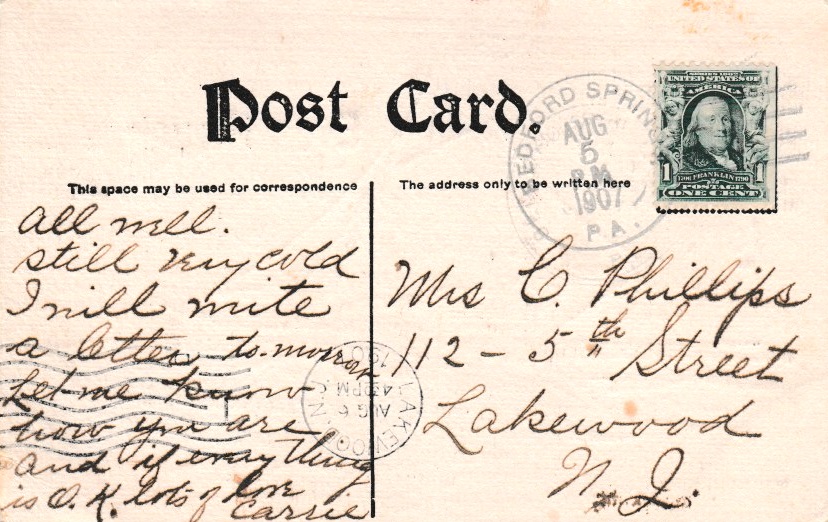 Post Card.
This space may be used for correspondence
The address only to be written here
BEDFORD SPRINGS
AUG
5
P.M.
1907
PA.
SERIES 1902
UNITED STATES OF
AMERICA
1706 FRANKLIN 1790
POSTAGE
1 ONE CENT 1
All well.
Still very cold
I will write
a letter to-morrow
Let me know
how you are
and if everything
is O.K. lots of love
Carrie
Mrs C. Phillips
112 - 5th Street
Lakewood
N. J.
LAKEWOOD N.J.
AUG 6
430PM
190